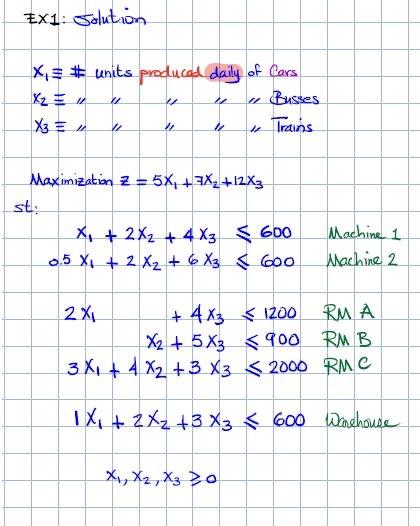 EX1: Solution
X₁ ≡ # units produced daily of Cars
X₂ ≡ " " " " " Busses
X₃ ≡ " " " " " Trains
Maximization Z = 5X₁ + 7X₂ + 12X₃
st:
X₁ + 2X₂ + 4X₃ ≤ 600 Machine 1
0.5 X₁ + 2X₂ + 6X₃ ≤ 600 Machine 2
2X₁ + 4X₃ ≤ 1200 RM A
X₂ + 5X₃ ≤ 900 RM B
3X₁ + 4X₂ + 3X₃ ≤ 2000 RM C
1X₁ + 2X₂ + 3X₃ ≤ 600 Warehouse
X₁, X₂, X₃ ≥ 0